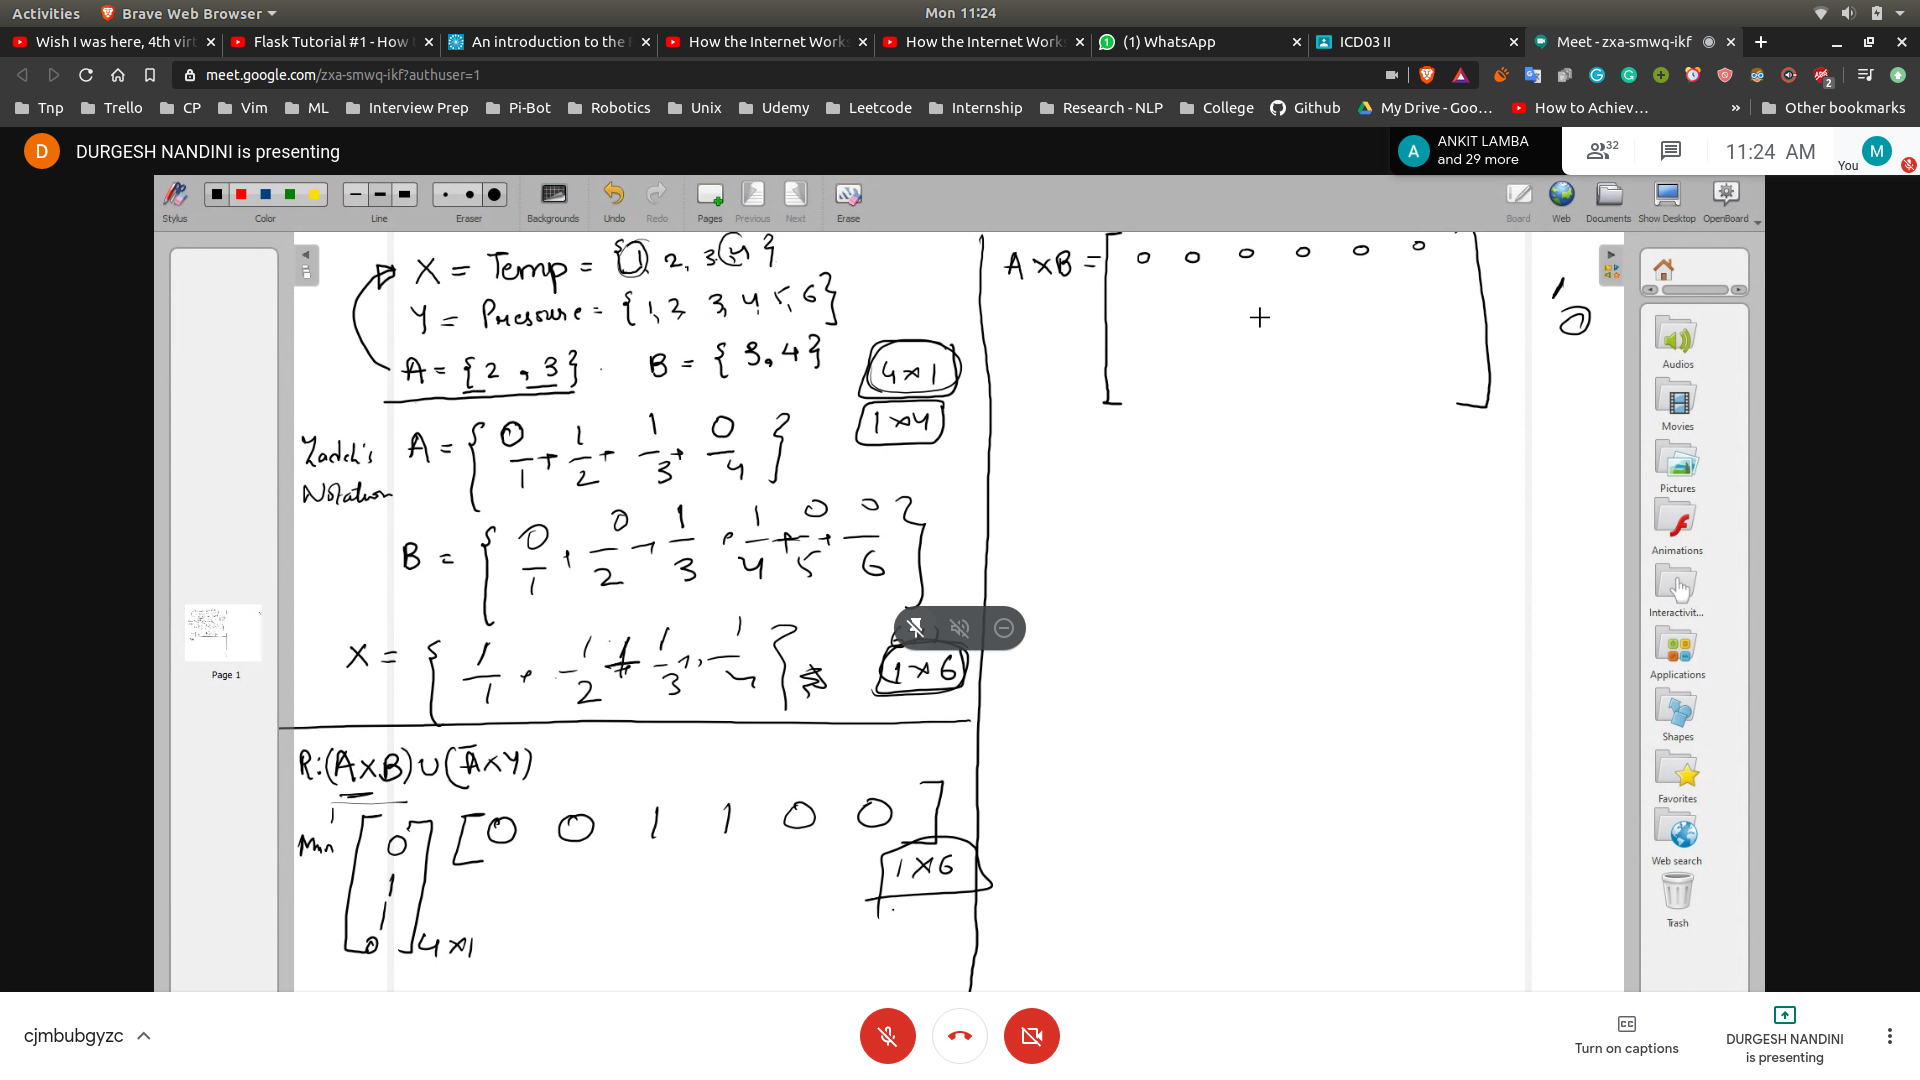 Activities Brave Web Browser Mon 11:24
Wish I was here, 4th vir Flask Tutorial #1 - How An introduction to the How the Internet Work How the Internet Work (1) WhatsApp ICD03 II Meet - zxa-smwq-ikf
meet.google.com/zxa-smwq-ikf?authuser=1 2
Tnp Trello CP Vim ML Interview Prep Pi-Bot Robotics Unix Udemy Leetcode Internship Research - NLP College Github My Drive - Goo… How to Achiev… » Other bookmarks
D DURGESH NANDINI is presenting
A ANKIT LAMBA
and 29 more
32 11:24 AM
You M
Stylus Color Line Eraser Backgrounds Undo Redo Pages Previous Next Erase Board Web Documents Show Desktop OpenBoard
X = Temp = {1, 2, 3, 4}
Y = Pressure = {1, 2, 3, 4, 5, 6}
A = {2, 3} B = {3, 4}
4×1
1×4
Zadeh's
Notation
A = {0/1 + 1/2 + 1/3 + 0/4}
B = {0/1 + 0/2 + 1/3 + 1/4 + 0/5 + 0/6}
X = {1/1 + 1/2 + 1/3 + 1/4}
1×6
R: (A×B) ∪ (A̅×Y)
Min [0 1 1 0] 4×1 [0 0 1 1 0 0]
1×6
A×B = [0 0 0 0 0 0]
1
0
Page 1
Audios
Movies
Pictures
Animations
Interactivit...
Applications
Shapes
Favorites
Web search
Trash
cjmbubgyzc
Turn on captions
DURGESH NANDINI
is presenting